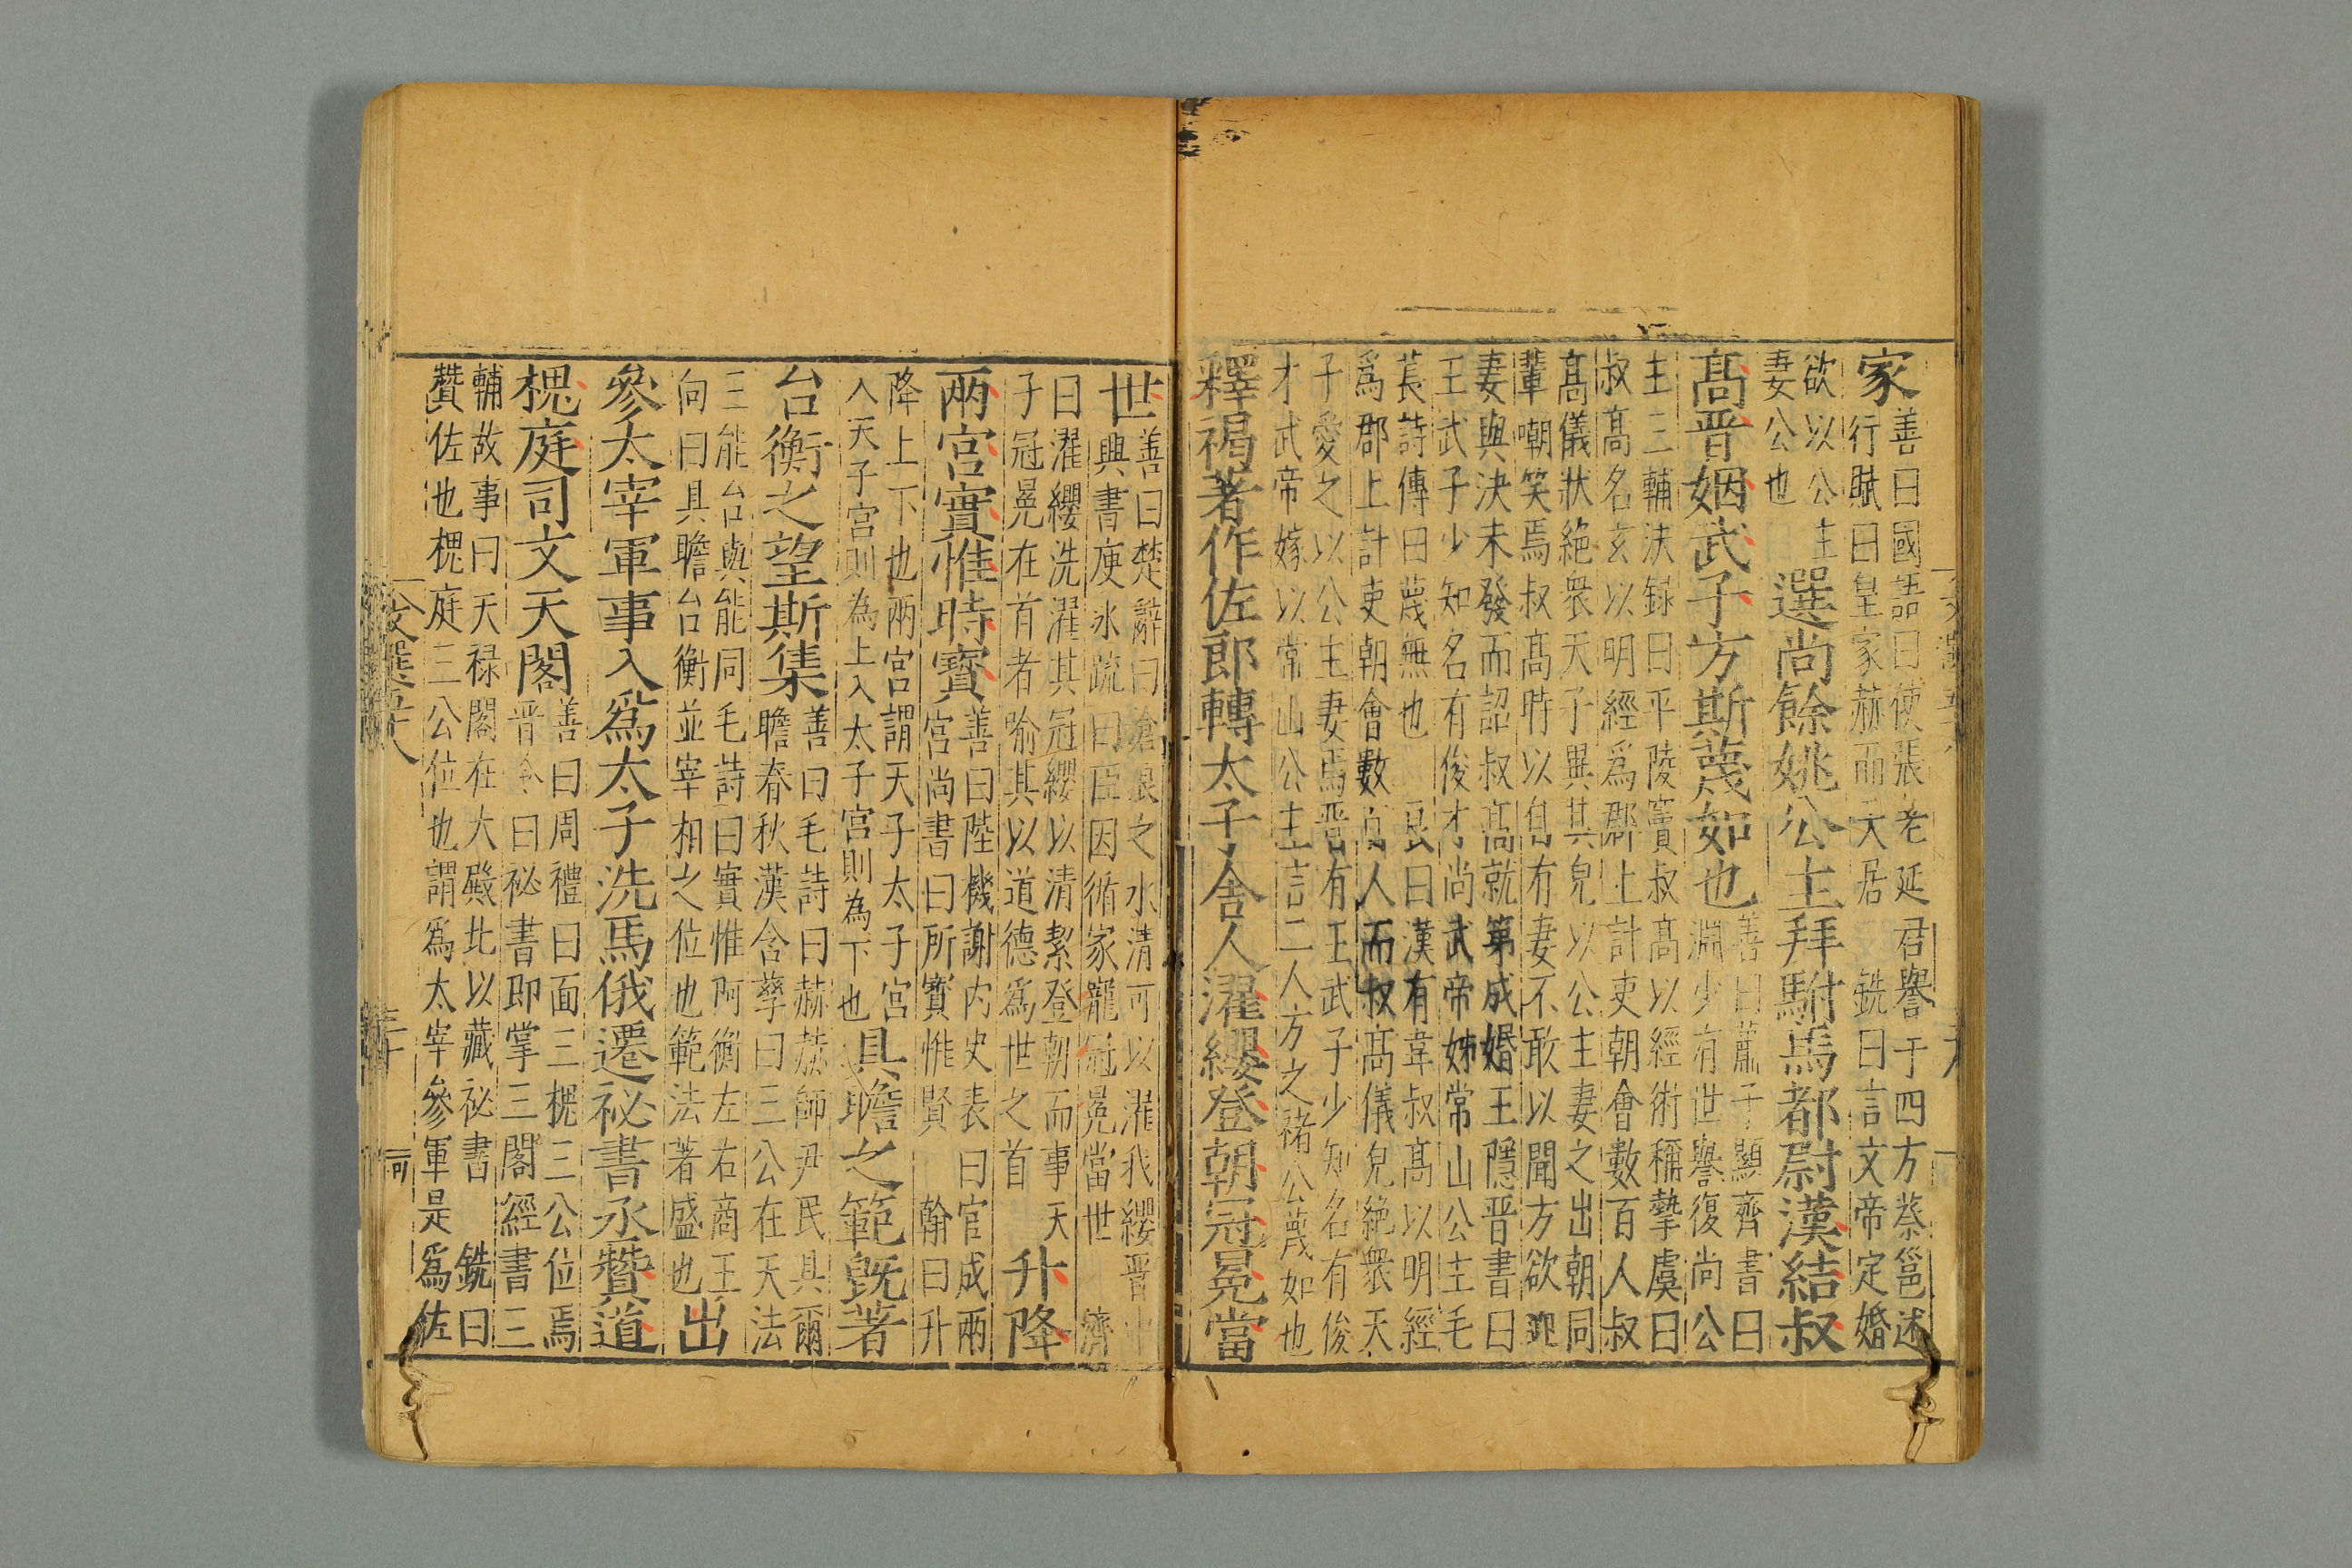 家善曰國語曰使張老延君譽于四方蔡邕述
行賦曰皇家赫而天居 銑曰言文帝定婚
欲以公主
妻公也選尚餘姚公主拜駙馬都尉漢結叔
高晉姻武子方斯蔑如也善曰蕭子顯齊書曰
淵少有世譽復尚公
主三輔決録曰平陵竇叔高以經術稱摯虞曰
叔高名玄以明經爲郡上計吏朝會數百人叔
高儀狀絶衆天子異其皃以公主妻之出朝同
輩嘲笑焉叔高時以自有妻不敢以聞方欲迎
妻與決未發而詔叔高就第成婚王隱晉書曰
王武子少知名有俊才尚武帝姊常山公主毛
萇詩傳曰蔑無也 良曰漢有韋叔高以明經
爲郡上計吏朝會數百人而叔高儀皃絶衆天
子愛之以公主妻焉晉有王武子少知名有俊
才武帝嫁以常山公主言二人方之褚公蔑如也
釋褐著作佐郎轉太子舍人濯纓登朝冠冕當
世善曰楚辭曰滄浪之水清可以濯我纓晉中
興書庾冰疏曰臣因循家寵冠冕當世 濟
曰濯纓洗濯其冠纓以清絜登朝而事天
子冠冕在首者喻其以道德爲世之首升降
兩宮實惟時寶善曰陸機謝内史表曰官成兩
宮尚書曰所寳惟賢 翰曰升
降上下也兩宮謂天子太子宮
入天子宮則為上入太子宮則為下也具瞻之範既著
台衡之望斯集善曰毛詩曰赫赫師尹民具爾
瞻春秋漢含孳曰三公在天法
三能台與能同毛詩曰實惟阿衡左右商王
向曰具瞻台衡並宰相之位也範法著盛也出
參太宰軍事入爲太子洗馬俄遷祕書丞贊道
槐庭司文天閣善曰周禮曰面三槐三公位焉
晉令曰祕書即掌三閣經書三
輔故事曰天禄閣在大殿北以藏祕書 銑曰
贊佐也槐庭三公位也謂爲太宰參軍是爲佐
文選五十八